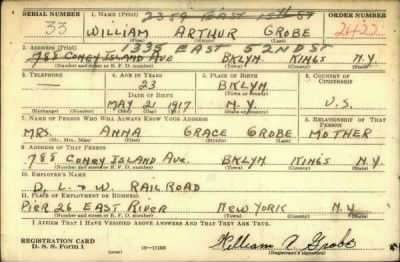 2359 EAST 15TH ST
SERIAL NUMBER 1. NAME (Print) ORDER NUMBER
33 WILLIAM ARTHUR GROBE 2422
(First) (Middle) (Last)
1335 EAST 52ND ST
2. ADDRESS (Print)
788 CONEY ISLAND AVE BKLYN KINGS N.Y.
(Number and street or R. F. D. number) (Town) (County) (State)
3. TELEPHONE 4. AGE IN YEARS 5. PLACE OF BIRTH 6. COUNTRY OF CITIZENSHIP
— 23 BKLYN
DATE OF BIRTH (Town or county)
MAY 21 1917 N.Y. U.S.
(Exchange) (Number) (Mo.) (Day) (Yr.) (State or country)
7. NAME OF PERSON WHO WILL ALWAYS KNOW YOUR ADDRESS 8. RELATIONSHIP OF THAT PERSON
MRS. ANNA GRACE GROBE MOTHER
(Mr., Mrs., Miss) (First) (Middle) (Last)
9. ADDRESS OF THAT PERSON
788 CONEY ISLAND AVE. BKLYN KINGS N.Y.
(Number and street or R. F. D. number) (Town) (County) (State)
10. EMPLOYER'S NAME
D. L. & W. RAILROAD
11. PLACE OF EMPLOYMENT OR BUSINESS
PIER 26 EAST RIVER NEW YORK N.Y.
(Number and street or R. F. D. number) (Town) (County) (State)
I AFFIRM THAT I HAVE VERIFIED ABOVE ANSWERS AND THAT THEY ARE TRUE.
REGISTRATION CARD
D. S. S. Form 1 (over) 16—17105 William A Grobe
(Registrant's signature)